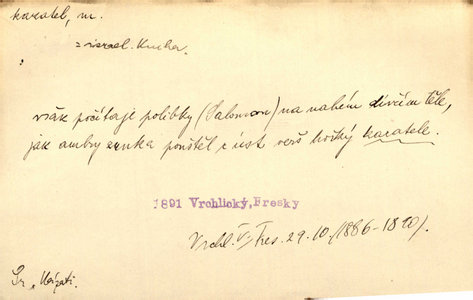 kazatel, m.
z israel. Kucha.
však počítaje polibky (Salomon) na nahém dívčím těle,
jak ambry zrnka pouštěl z úst verš hořký kazatele.
1891 Vrchlický, Fresky
Vrchl. Fres. 29.10. (1886-1890).
Sr.